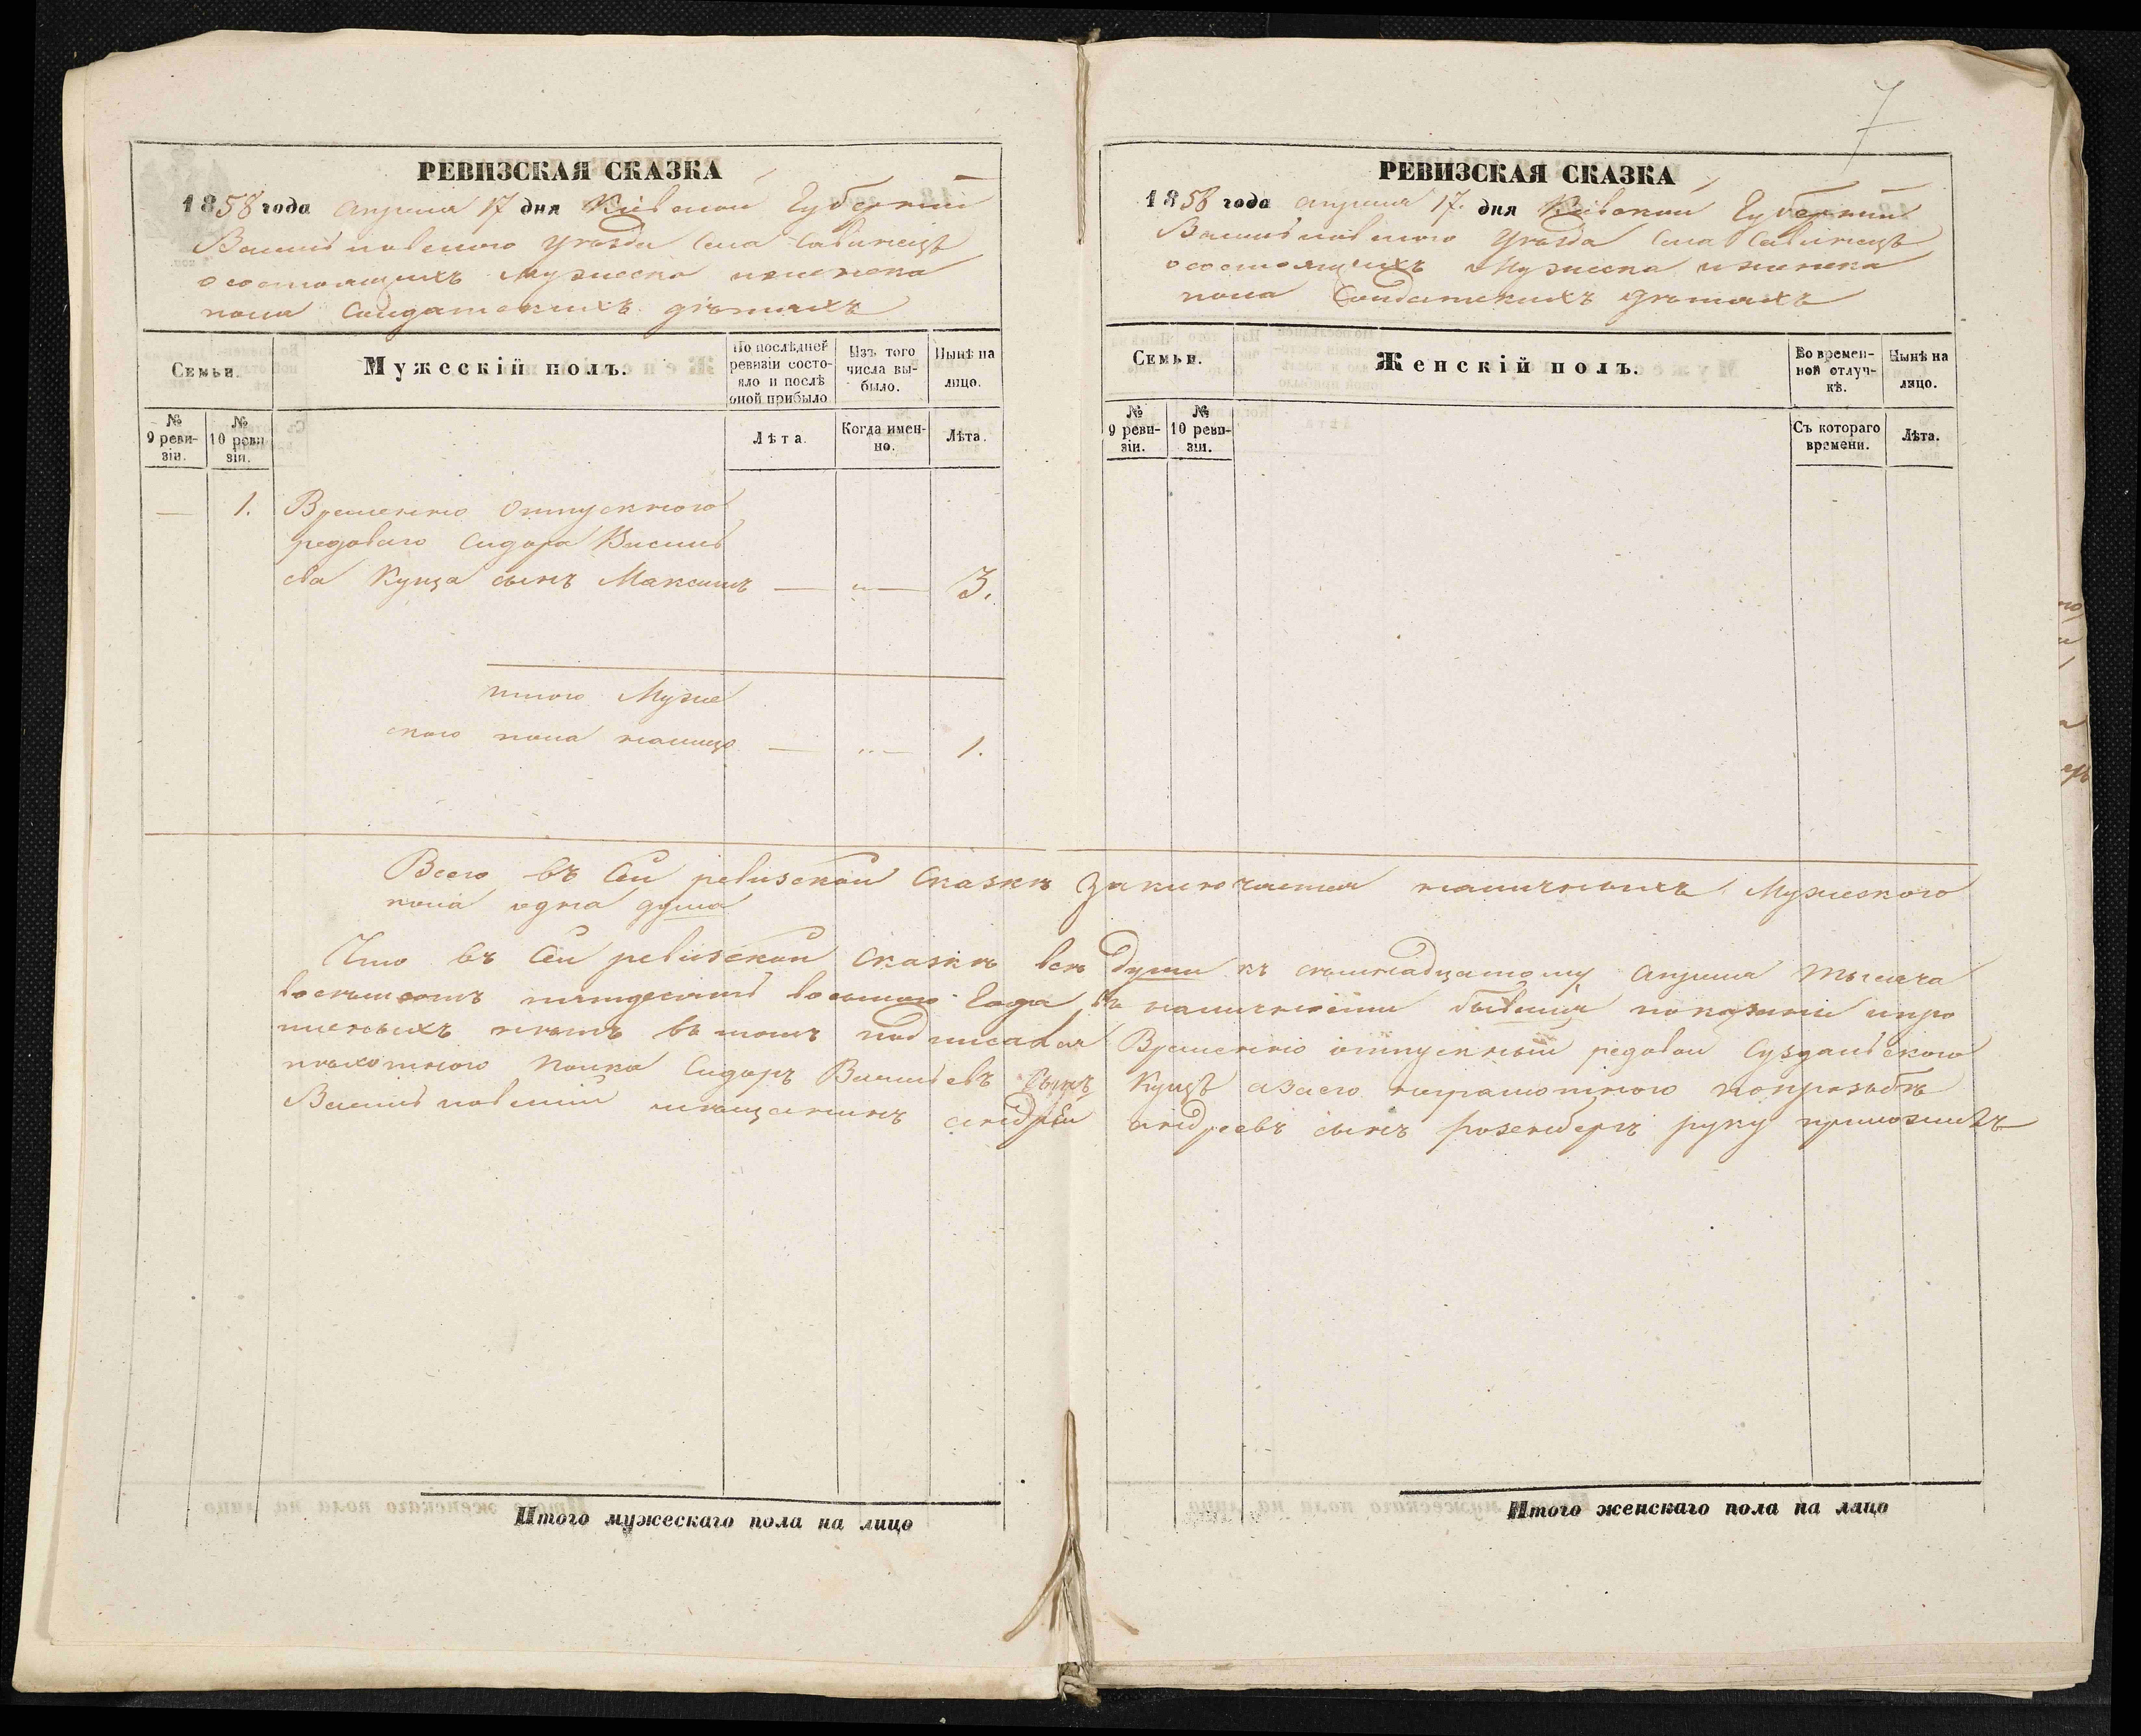 7
РЕВИЗСКАЯ СКАЗКА
1858 года апреля 17 дня Кіевской Губерніи
Васильковского Уезда Села Савинецъ
о состоящихъ Мужеска и женска
пола Солдатскихъ детяхъ
Семьи.
Мужескій полъ.
По послѣдней ревизіи состояло и послѣ оной прибыло
Изъ того числа выбыло.
Нынѣ на лицо.
№ 9 ревизіи.
№ 10 ревизіи.
Лѣта.
Когда именно.
Лѣта.
— 1. Временно отпускного
редоваго Сидора Василь
ева Купца сынъ Максимъ — „ — 3.
итого Муже
ского пола налицо — „ — 1.
РЕВИЗСКАЯ СКАЗКА
1858 года апреля 17. дня Кіевской Губерніи
Васильковского Уезда Села Савинецъ
о состоящихъ Мужеска и женска
пола Солдатскихъ детяхъ
Семьи.
Женскій полъ.
Во временной отлучкѣ.
Нынѣ на лицо.
№ 9 ревизіи.
№ 10 ревизіи.
Съ котораго времени.
Лѣта.
Всего въ Сей ревизской Сказке заключается наличныхъ Мужеского
пола одна душа
Что въ Сей ревизской Сказке все души къ семнадцатому апреля тысяча
восемьсотъ пятдесятъ восьмого Года въ наличности бывшія показаны и про
писныхъ нетъ въ томъ подписался Временно отпускный редовой Суздальского
пехотного Полка Сидоръ Васильевъ Сынъ Купцъ а за его неграмотного по прозьбе
Васильковский мещанинъ андрей андреевъ сынъ розенбергъ руку приложилъ
Итого мужескаго пола на лицо
Итого женскаго пола на лицо